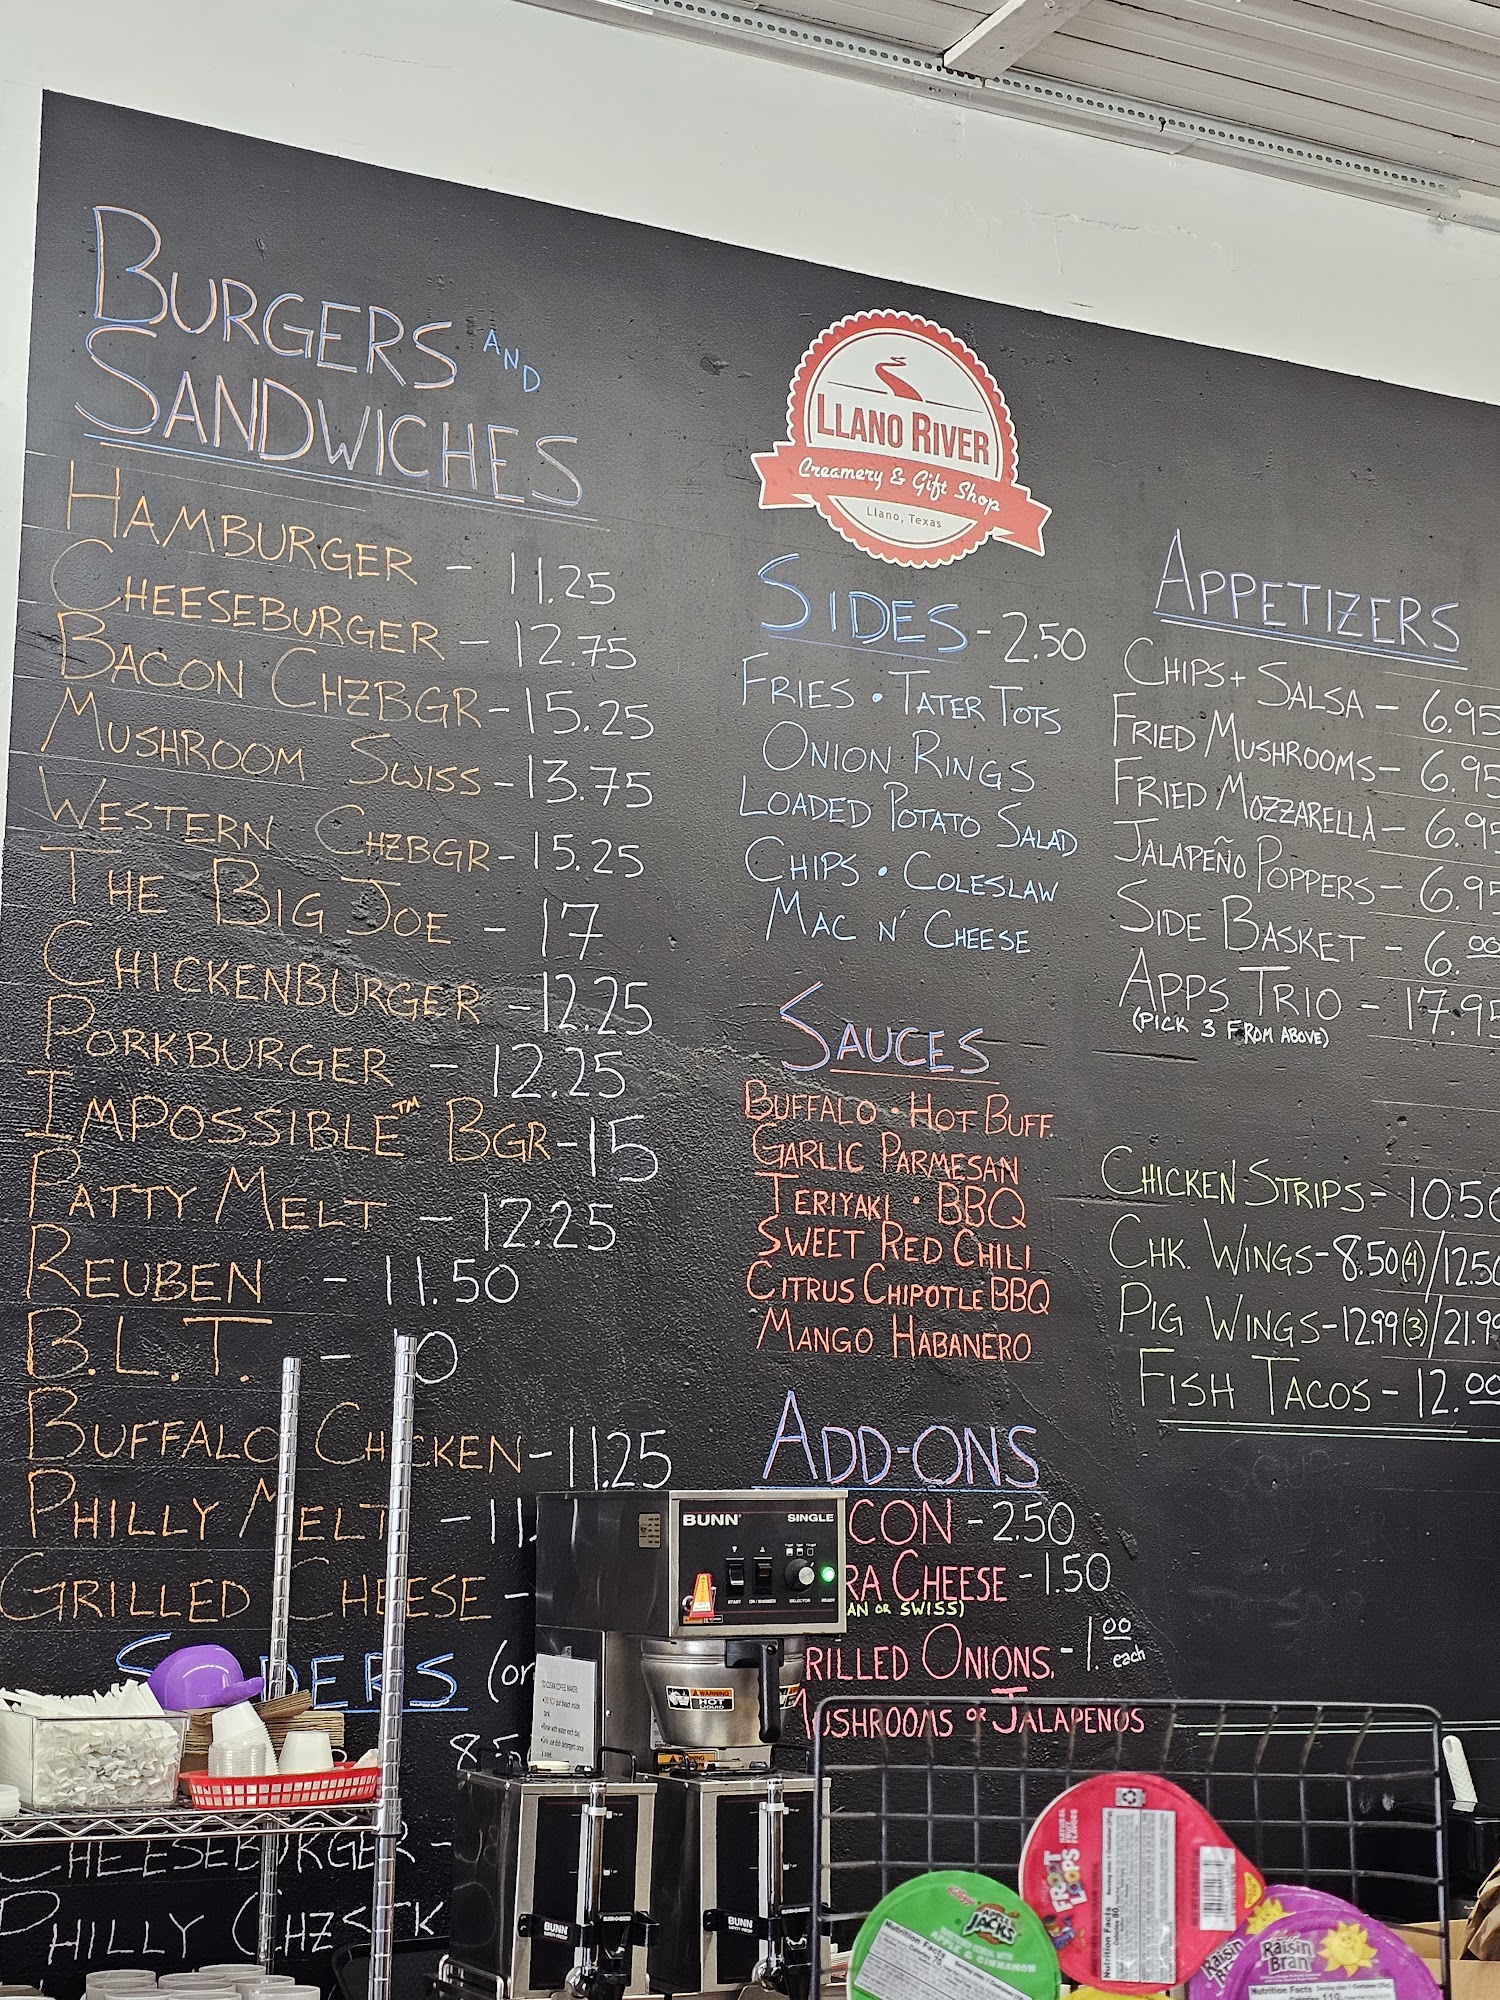 BURGERS AND
SANDWICHES
HAMBURGER - 11.25
CHEESEBURGER - 12.75
BACON CHZBGR - 15.25
MUSHROOM SWISS - 13.75
WESTERN CHZBGR - 15.25
THE BIG JOE - 17
CHICKENBURGER - 12.25
PORKBURGER - 12.25
IMPOSSIBLE™ BGR - 15
PATTY MELT - 12.25
REUBEN - 11.50
B.L.T. -
BUFFALO CHICKEN - 11.25
PHILLY MELT -
GRILLED CHEESE -
CHEESEBURGER -
PHILLY CHZSTK
LLANO RIVER
Creamery & Gift Shop
Llano, Texas
SIDES - 2.50
FRIES • TATER TOTS
ONION RINGS
LOADED POTATO SALAD
CHIPS • COLESLAW
MAC N' CHEESE
SAUCES
BUFFALO • HOT BUFF.
GARLIC PARMESAN
TERIYAKI • BBQ
SWEET RED CHILI
CITRUS CHIPOTLE BBQ
MANGO HABANERO
ADD-ONS
CON - 2.50
RA CHEESE - 1.50
AN OR SWISS)
RILLED ONIONS, - 1.00 each
MUSHROOMS OR JALAPENOS
APPETIZERS
CHIPS + SALSA - 6.95
FRIED MUSHROOMS - 6.95
FRIED MOZZARELLA - 6.95
JALAPEÑO POPPERS - 6.95
SIDE BASKET - 6.00
APPS TRIO - 17.95
(PICK 3 FROM ABOVE)
CHICKEN STRIPS - 10.50
CHK. WINGS - 8.50(4)/12.50
PIG WINGS - 12.99(3)/21.99
FISH TACOS - 12.00
BUNN SINGLE
START ON / WARMER SELECTOR READY
WARNING
HOT
LIQUID
WARNING
BUNN
BUNN
FROOT LOOPS
Nutrition Facts
APPLE JACKS
Nutrition Facts
APPLE & CINNAMON
Raisin Bran
Raisin Bran
Nutrition Facts
Calories 110